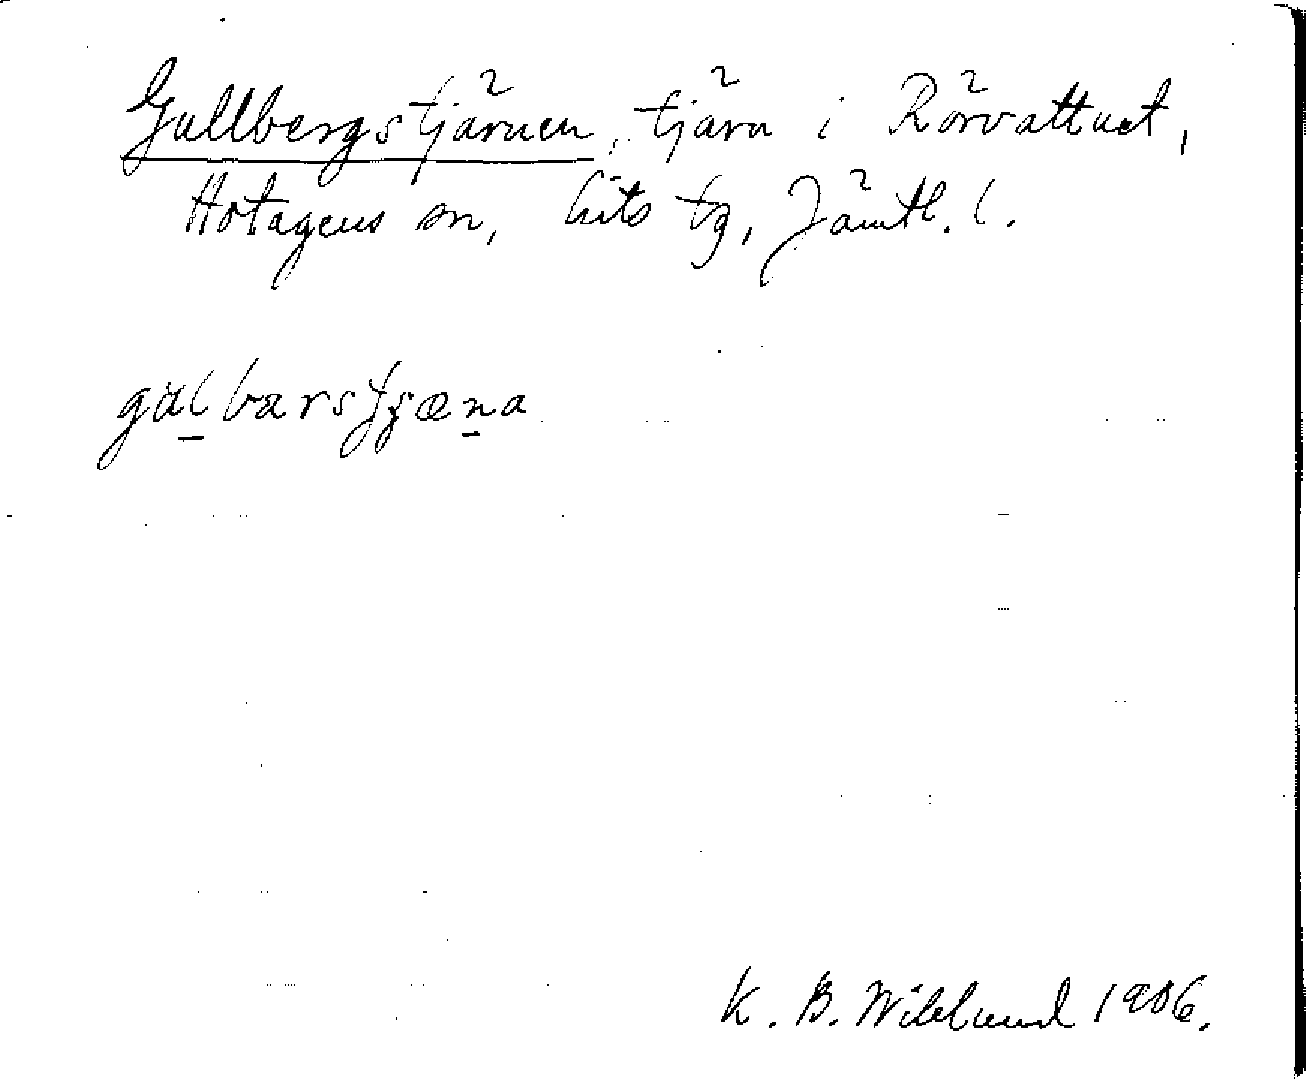 Gullbergstjärnen, tjärn i Rörvattnet,
Hotagens sn, Lits tg, Jämtl. l.
K. B. Wiklund 1906.